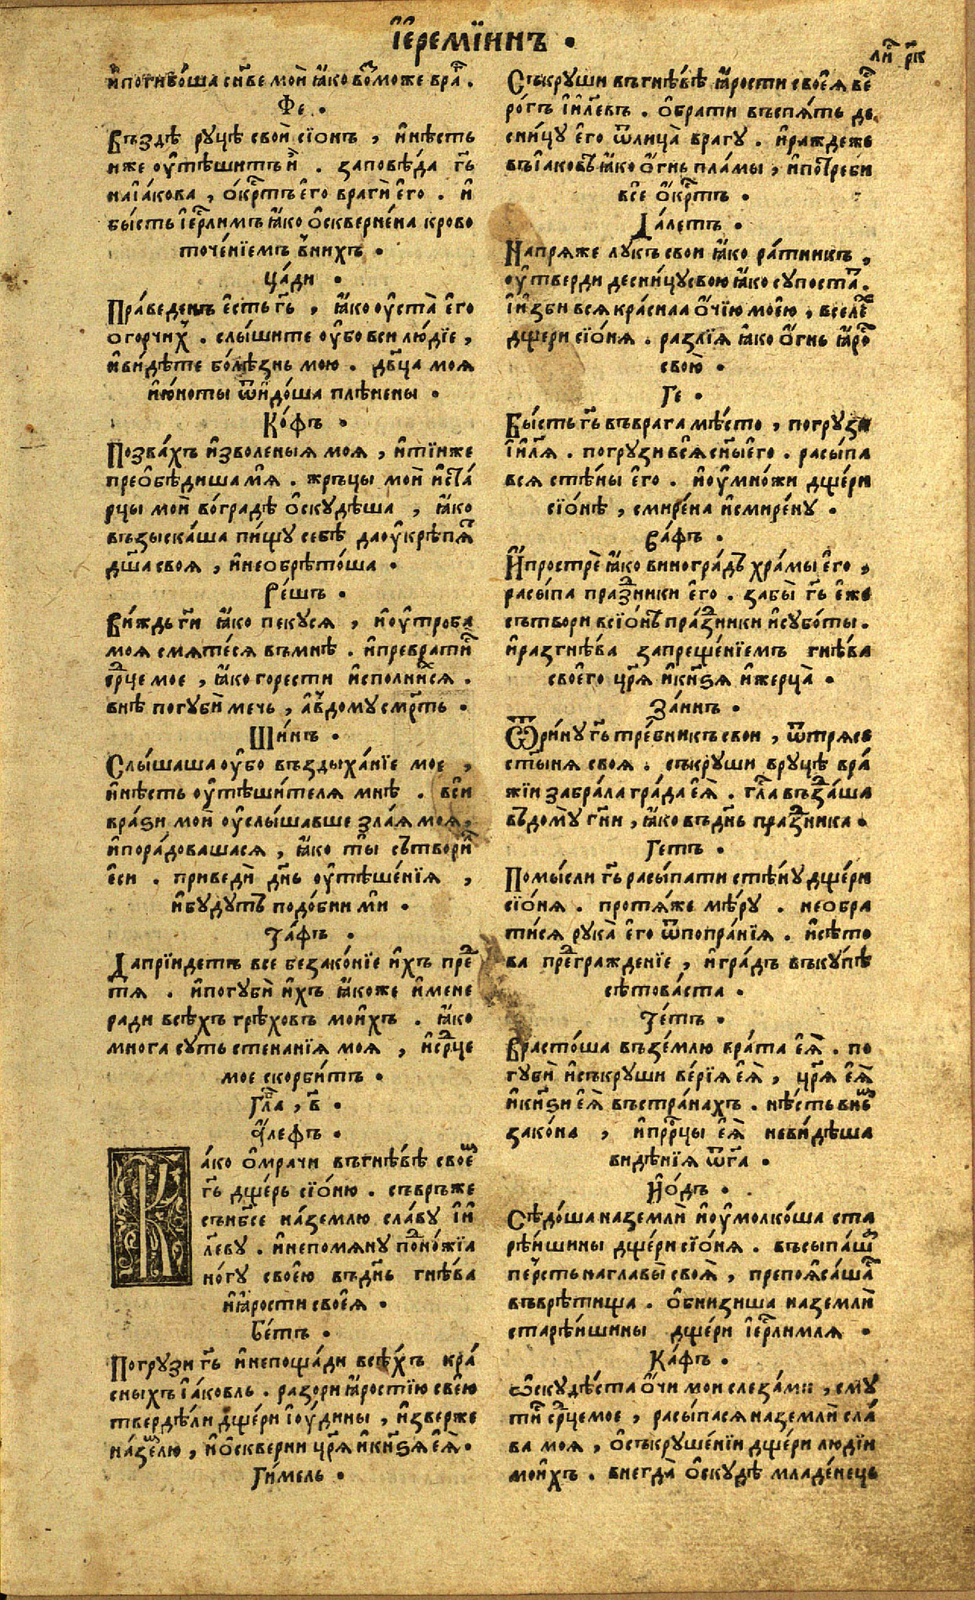 і҆ереми́инъ .
ли҇ рк҃
и҆погибо́ша сн҃ве мои̑ ꙗ҆ко во́зможе вра҇ .
Фе .
Въздѣ̀ руцѣ̀ свои̑ сїо́нъ , и҆нѣ́сть
иже оу҆тѣши́тъ и҆̀ . заповѣ́да гь҃
наїа́кова , о҆́крⷭ҇тъ є҆го̀ врагѝ є҆го̀ . и҆
бы́сть і҆ерⷭ҇ли́мъ ꙗ҆ко ѻ҆сквернє́на крово
точє́нїємъ в̾нихъ .
ца́ди .
Пра́веденъ є҆́сть гь҃ , ꙗ҆ко оу҆ста̀ є҆го̀
огорчих̾ . слы́шите оу҆́бо вси лю́дїе ,
и҆ви́дѣте болѣ́знь мою . дв҃ца моя
и҆ю́ноты ѿи҆до́ша плѣне́ны .
Ко́фъ .
Позва́хъ и҆зволеныя моя , и҆тїиже
преобѣ́диша мѧ̀ . жръцы мои̑ и҆ста́
рцы мои̑ во́градѣ ѻ҆скудѣ́ша , ꙗ҆ко
възыска́ша пи́щу себѣ̀ даоу҆крѣпѧ҇
дш҃а своя , и҆необрѣто́ша .
Ре́шъ .
Ви́ждь гн҃и ꙗ҆ко пекуся , и҆оу҆тро́ба
моя смяте́ся въмнѣ̀ . и҆преврати́
срⷣце мое , ꙗ҆ко го́рести и҆спо́лни́ся .
внѣ̀ погубѝ мечь , а҆в̾дому смр҃ть .
Ши́нъ .
Слы́шаша оу҆́бо въздыха́нїе мое ,
и҆нѣ́сть оу҆тѣши́теля мнѣ̀ . всѝ
вра́ѕи мои̑ оу҆слы́шавше зла́я моя ,
и҆пора́довашася , ꙗ҆ко ты̀ сътвори́
є҆си . приведѝ дн҃ь оу҆тѣше́нїя ,
и҆бу́дутъ подо́бни мѝ .
Та́фъ .
Даприиде́тъ все безако́нїе и҆́хъ прⷣе
тя . и҆погубѝ и҆́хъ ꙗ҆коже и҆мене
ради всѣ́хъ грѣхо́въ мои́хъ . ꙗ҆ко
многа суть стена́нїя моя , и҆срⷣце
мое скорби́тъ .
Гл҃а , в҃ .
а҆́лефъ .
Ка́ко ѻ҆мрачи въгнѣ́вѣ своє҆
гь҃ дще́рь сїо́ню . съврьже
сънб҃се на́землю сла́ву і҆и
л҃еву . и҆непомяну по́дно́жїа
но́гу своє́ю въдн҃ь гнѣ́ва
и҆ꙗ҆́рости своє́я .
Бе́тъ .
Погрузи гь҃ и҆непоща́ди всѣ́хъ кра́
сныхъ і҆а́ковль . разори ꙗ҆́ростїю своє́ю
твердѣ́ли дще́ри і҆оу҆́дины , и҆зве́рже
на́землю , и҆ѻ҆скверни цр҃я̀ и҆кн҃ѕя є҆я̀ .
Ги́мель .
Съкруши въгнѣ́вѣ ꙗ҆́рости своє́я вѐ
ро́гъ і҆и҃левъ . ѻ҆брати въспя́ть де
сни́цу є҆го̀ ѿлица̀ врагу . и҆раждеже
въі҆а́ковѣ ꙗ҆ко ѻ҆́гнь пла́мы , и҆потреби
все ѻ҆́крⷭ҇тъ .
Да́летъ .
Напря́же лу́къ свои ꙗ҆ко ра́тникъ ,
оу҆тверди десни́цу свою ꙗ҆ко супоста҇ .
і҆и҆зби вся кра́снаа ѻ҆́чїю моє́ю , вселе҇
дще́ри сїо́ня . разлїя̀ ꙗ҆ко ѻ҆́гнь ꙗ҆́ро҇
свою̀ .
Ге .
Бы́сть гь҃ въвра́га мѣ́сто , погрузѝ
і҆и҃ля . погрузи вся̀ сн҃ы є҆го̀ . расы́па
вся стѣ́ны є҆го̀ . и҆оу҆мно́жи дще́ри
сїо́нѣ , смире́на и҆смире́ну .
Ва́фъ .
И҆прострѐ ꙗ҆ко виногра́дъ хра́мы є҆го̀ ,
расы́па пра́здники є҆го̀ . забы̀ гь҃ є҆же
сътвори всїо́нѣ пра́здники и҆субо́ты .
и҆разгнѣ́ва запреще́нїемъ гнѣ́ва
своє́го цр҃я̀ и҆кн҃ѕя и҆жерца̀ .
За́инъ .
Ѿри́ну гь҃ тре́бникъ свои , ѿтря́се
ст҃ыня своя . съкруши вруцѣ̀ вра́
жїи забра́ла гра́да є҆я̀ . гл҃а възда́ша
въдому гн҃и , ꙗ҆ко въдн҃ь пра́здника .
Ге́тъ .
Помы́сли гь҃ расы́пати стѣ́ну дще́ри
сїо́ня . протя́же мѣ́ру . необра
ти́ся рука̀ є҆го̀ ѿпопра́нїя . и҆сѣто
ва пре́дгражденїе , и҆гра́дъ въкупѣ
сѣтова́ста .
Те́тъ .
Врасто́ша възе́млю врата є҆я̀ . по
губѝ и҆съкруши ве́рїя є҆я̀ , цр҃я̀ є҆я̀
и҆кн҃ѕи є҆я̀ въстра́нахъ . нѣ́сть вни́х
зако́на , и҆прⷪ҇рцы є҆я̀ неви́дѣша
видѣ́нїя ѿг҃а .
И҆о́дъ .
Сѣдо́ша наземлѝ и҆оу҆молко́ша ста
рѣ́ишины дще́ри сїо́ня . въсыпа́ш҇
пе́рсть наглавы̀ своя̀ , препоя́саш҇
въврѣ́тища . ѻ҆бнизиша наземлѝ
старѣ́ишины дще́ри і҆ерⷭ҇ли́мля .
Ка́фъ .
Ѻ҆скудѣ́ста ѻ҆́чи мои слеза́ми , сму
ти́ срⷣцемое , расы́пася наземлѝ сла́
ва моя , ѻ҆съкруше́нїи дще́ри людїи
мои́хъ . внегда̀ ѻ҆скудѣ̀ младе́нець